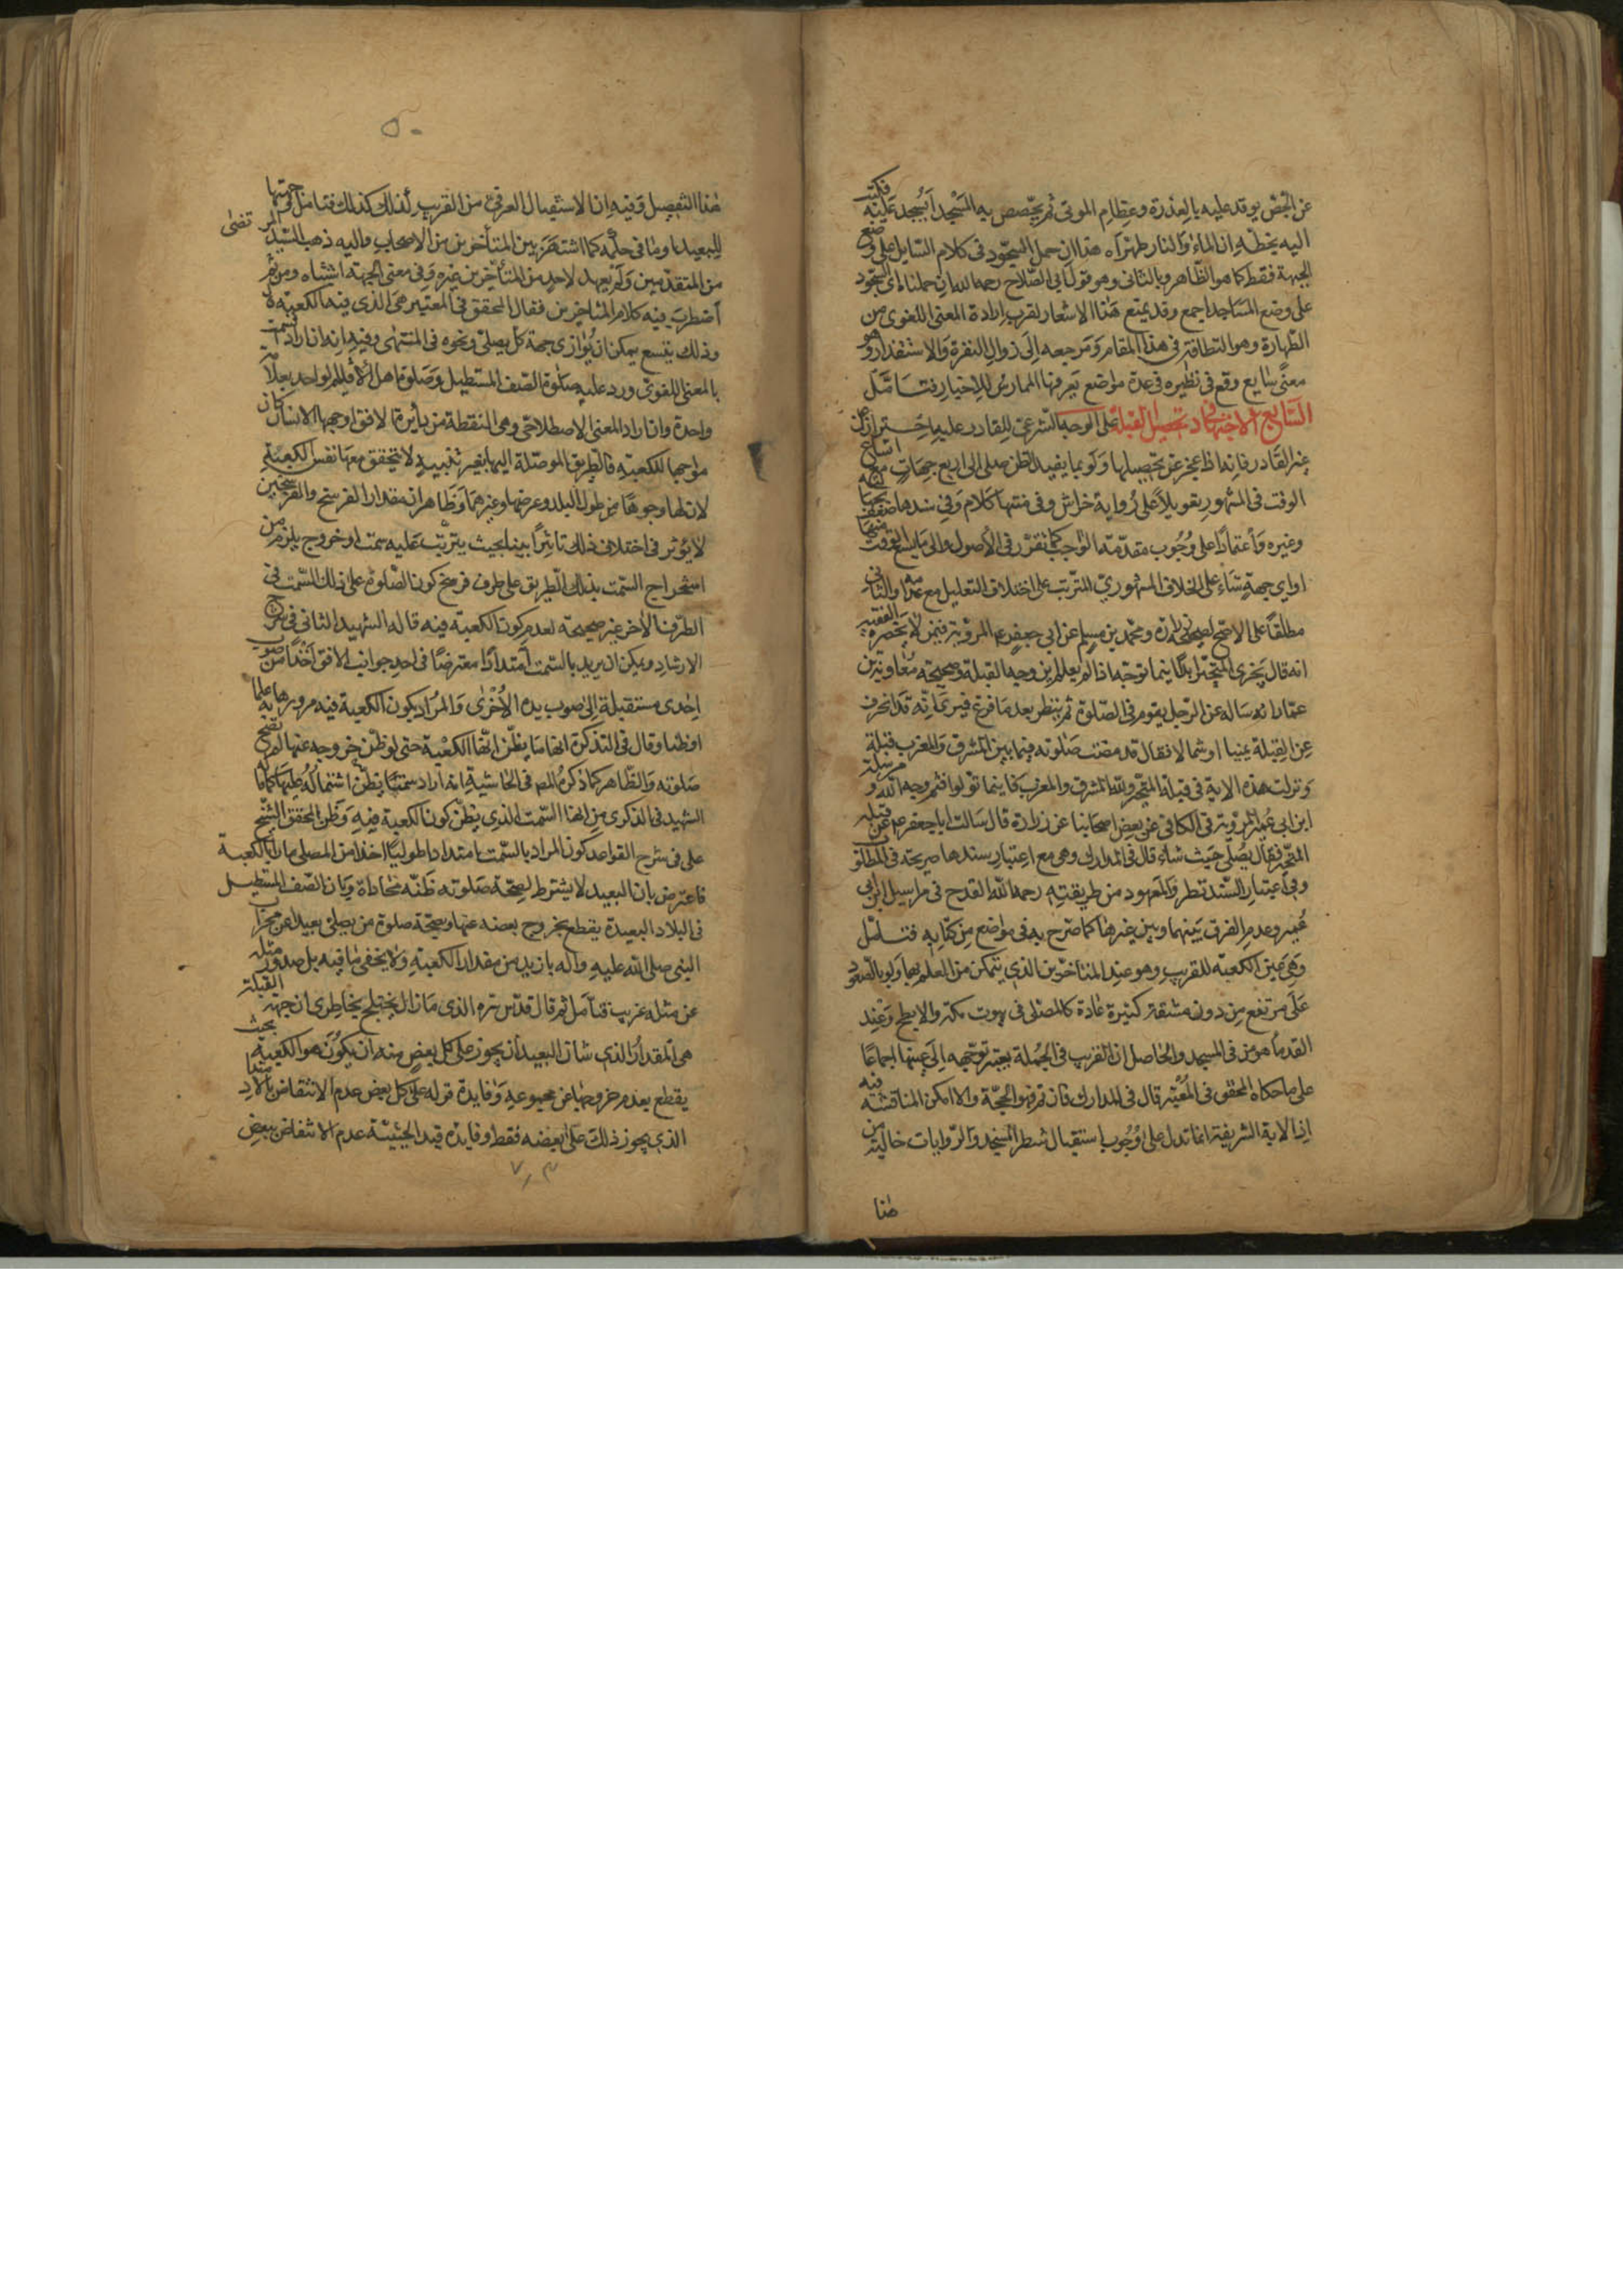 عن الجص يوقد عليه بالعذرة وعظام الموتى ثم يجصص به المسجد أيسجد عليه فكتب
اليه بخطه ان الماء والنار طهراه هذا ان حمل السجود في كلام السايل على وضع
الجبهة فقط كما هو الظاهر وبالثاني وهو قول ابي الصلاح رحمه الله ان حملناه على السجود
على وضع المساجد اجمع وقد يمنع هذا الاشعار لقرب ارادة المعنى اللغوي من
الطهارة وهو النظافة في هذا المقام ومرجعه الى زوال النفرة والاستقذار وهو
معنى شايع وقع في نظيره في عدة مواضع يعرفها الممارس للاخبار فتامل
السابع الاجتهاد في تحصيل القبلة على الوجه الشرعي للقادر عليه احتراز عن
غير القادر فانه اذا عجز عن تحصيلها ولو بما يفيد الظن صلى الى اربع جهات مع اتساع
الوقت في المشهور تعويلا على رواية خراش وفي متنها كلام وفي سندها ضعف بجهالته
وغيره واعتمادا على وجوب مقدمة الواجب كما تقرر في الأصول والى ما يسع الوقت منها
او اي جهة شاء على الخلاف المشهوري المترتب على اختلاف التعليل مع عدمه والثاني
مطلقا على الاصح لصحيحة زرارة ومحمد بن مسلم عن ابي جعفر ع المروية في من لا يحضره الفقيه
انه قال يجزي المتحير ابدا اينما توجه اذا لم يعلم اين وجه القبلة وصحيحة معاوية بن
عمار انه ساله عن الرجل يقوم في الصلوة ثم ينظر بعد ما فرغ فيرى انه قد انحرف
عن القبلة يمينا او شمالا فقال قد مضت صلوته فيما بين المشرق والمغرب قبلة
ونزلت هذه الاية في قبلة المتحير ولله المشرق والمغرب فاينما تولوا فثم وجه الله ومرسلة
ابن ابي عمير المروية في الكافي عن بعض اصحابنا عن زرارة قال سالت ابا جعفر ع عن قبلة
المتحير فقال يصلي حيث شاء قال في المدارك وهي مع اعتبار سندها صريحة في المطلوب
وفي اعتبار السند نظر والمعهود من طريقته رحمه الله القدح في مراسيل ابن ابي
عمير وعدم الفرق بينها وبين غيرها كما صرح به في مواضع من كتابه فتامل
وهي عين الكعبة للقريب وهو عند المتأخرين الذي يتمكن من العلم بها ولو بالصعود
على مرتفع من دون مشقة كثيرة عادة كالمصلي في بيوت مكة والابطح وعند
القدماء هو من في المسجد والحاصل ان القريب في الجملة يعتبر توجهه الى عينها اجماعا
على ما حكاه المحقق في المعتبر قال في المدارك فان تم فهو الحجة والا امكن المناقشة فيه
اذ الاية الشريفة انما تدل على وجوب استقبال شطر المسجد والروايات خالية من
هذا
٥٠
هذا التفصيل وفيه ان الاستقبال العرفي من القريب لذلك كذلك فتامل وجهتها
للبعيد وما في حكمه كما اشتهر بين المتأخرين من الاصحاب واليه ذهب السيد المرتضى
من المتقدمين ولم يعهد لاحد من المتأخرين غيره وفي معنى الجهة اشتباه ومن ثم
اضطرب فيه كلام المتاخرين فقال المحقق في المعتبر هي الذي فيه الكعبة لا
وذلك يتسع يمكن ان يوازي جهة كل مصلي ونحوه في المنتهى وفيه انه ان اراد السمت
بالمعنى اللغوي ورد عليه صلوة الصف المستطيل وصلوة اهل الاقليم الواحد بعلامة
واحدة وان اراد المعنى الاصطلاحي وهي النقطة من دائرة الافق اوجهها الانسان كان
مواجها للكعبة فالطريق الموصلة اليها بغير تقييد لا تحقق معها نفس الكعبة
لان لها وجوها من طول البلد وعرضها وغيرهما وظاهر ان مقدار الفرسخ والفرسخين
لا يؤثر في اختلاف ذلك تاثيرا بينا بحيث يترتب عليه سمت اخر وح يلزم من
استخراج السمت بذلك الطريق على طرف فرسخ كون الصلوة على ذلك السمت في
الطرف الاخر غير صحيحة لعدم كون الكعبة فيه قاله الشهيد الثاني في شرح
الارشاد ويمكن ان يريد بالسمت امتدادا معترضا في احد جوانب الافق اخذا من صوب
احدى مستقبلة الى صوب يده الأخرى والمراد بكون الكعبة فيه مرورها به علما
او ظنا وقال في التذكرة انها ما يظن انها الكعبة حتى لو ظن خروجه عنها لم تصح
صلوته والظاهر كما ذكره المص في الحاشية انه اراد سمتا يظن اشتماله عليها كما قاله
الشهيد في الذكرى من انها السمت الذي يظن كون الكعبة فيه وظن المحقق الشيخ
على في شرح القواعد كون المراد بالسمت امتدادا طوليا اخذا من المصلي مارا بالكعبة
فاعترض بان البعيد لا يشترط لصحة صلوته ظنه محاذاة وبان الصف المستطيل
في البلاد البعيدة يقطع بخروج بعضه عنها وبصحة صلوة من يصلي بعيدا عن محراب
النبي صلى الله عليه واله بازيد من مقدار الكعبة ولا يخفى ما فيه بل صدور مثله
عن مثله غريب فتامل ثم قال قدس سره الذي ما زال يختلج بخاطري ان جهة القبلة
هي المقدار الذي شان البعيد ان يجوز على كل بعض منه ان يكون هو الكعبة بحيث
يقطع بعدم خروجها عن مجموعه وفايدة قوله على كل بعض عدم الانتقاض بالمقدار
الذي يجوز ذلك على بعضه فقط وفايدة قيد الحيثية عدم الانتقاض ببعض